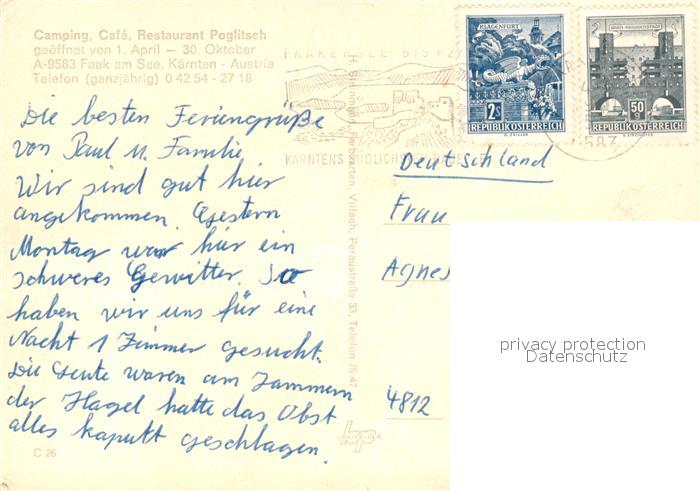 Camping, Café, Restaurant Poglitsch
geöffnet von 1. April — 30. Oktober
A-9583 Faak am See, Kärnten - Austria
Telefon (ganzjährig) 0 42 54 - 27 18
Die besten Feriengrüße
von Paul u. Familie
Wir sind gut hier
angekommen. Gestern
Montag war hier ein
schweres Gewitter. So
haben wir uns für eine
Nacht 1 Zimmer gesucht.
Die Leute waren am Jammern
der Hagel hatte das Obst
alles kaputt geschlagen.
C 26
FAAKERSEE
KÄRNTENS
Farbkarten, Villach, Peraustraße 33, Telefon 75 47
KLAGENFURT
2 S
REPUBLIK ÖSTERREICH
50 g
REPUBLIK ÖSTERREICH
9583
Deutschland
Frau
Agnes
4812
privacy protection
Datenschutz